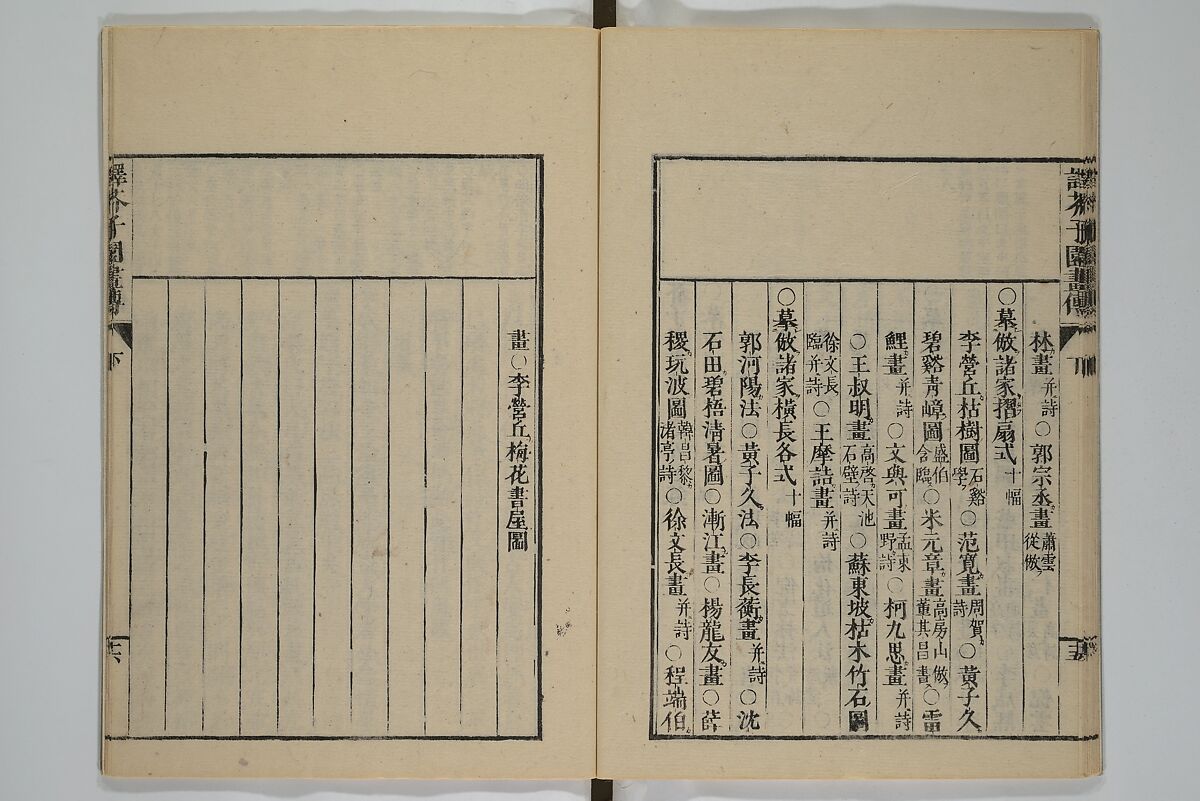 譯芥子園畫傳
林畫并詩○郭宗丞畫蕭雲從倣
○摹倣諸家摺扇式十幅
李營丘枯樹圖石谿學○范寬畫周賀詩○黃子久
碧谿青嶂圖盛伯含臨○米元章畫高房山倣董其昌書○雷
鯉畫并詩○文與可畫孟東野詩○柯九思畫并詩
○王叔明畫高啓天池石壁詩○蘇東坡枯木竹石圖
徐文長臨并詩○王摩詰畫并詩
○摹倣諸家橫長各式十幅
郭河陽法○黃子久法○李長蘅畫并詩○沈
石田碧梧清暑圖○漸江畫○楊龍友畫○薛
稷玩波圖韓昌黎諸亭詩○徐文長畫并詩○程端伯
畫○李營丘梅花書屋圖
譯芥子園畫傳
下